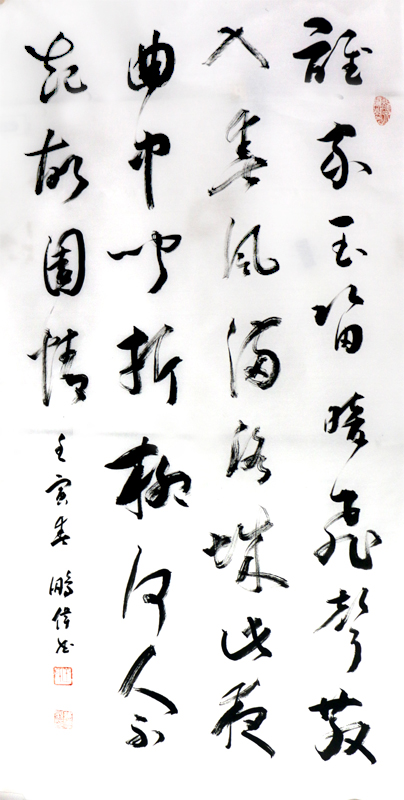 誰家玉笛暗飛聲散
入春風滿洛城此夜
曲中聞折柳何人不
起故園情 壬寅春 鵬偉书